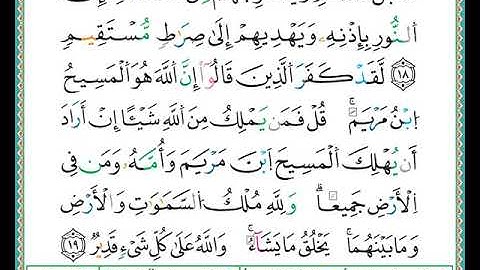 ٱلنُّورِ بِإِذْنِهِۦ وَيَهْدِيهِمْ إِلَىٰ صِرَٰطٍ مُّسْتَقِيمٍ
١٨ لَّقَدْ كَفَرَ ٱلَّذِينَ قَالُوٓا۟ إِنَّ ٱللَّهَ هُوَ ٱلْمَسِيحُ
ٱبْنُ مَرْيَمَ ۚ قُلْ فَمَن يَمْلِكُ مِنَ ٱللَّهِ شَيْـًٔا إِنْ أَرَادَ
أَن يُهْلِكَ ٱلْمَسِيحَ ٱبْنَ مَرْيَمَ وَأُمَّهُۥ وَمَن فِى
ٱلْأَرْضِ جَمِيعًا ۗ وَلِلَّهِ مُلْكُ ٱلسَّمَٰوَٰتِ وَٱلْأَرْضِ
وَمَا بَيْنَهُمَا ۚ يَخْلُقُ مَا يَشَآءُ ۚ وَٱللَّهُ عَلَىٰ كُلِّ شَىْءٍ قَدِيرٌ ١٩